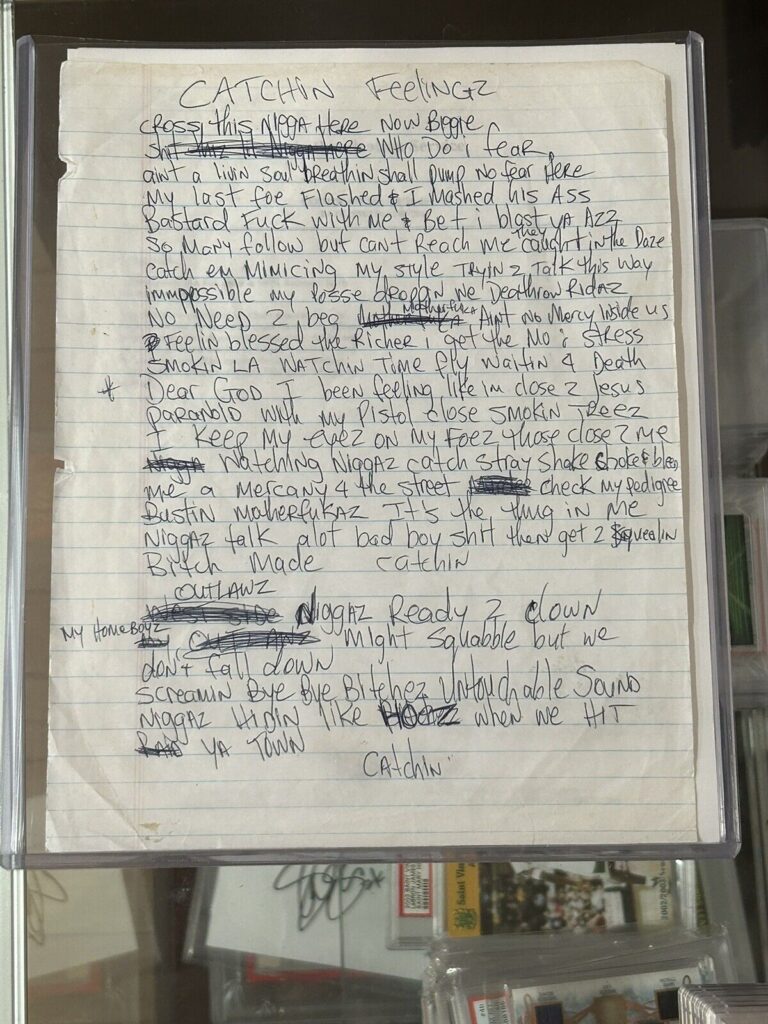 CATCHIN FeeliNGZ
cross this Nigga Here Now Biggie
Shit WHO Do i fear
aint a livin soul breathin shall pump No fear Here
My last foe Flashed & I Mashed his ASS
Bastard Fuck with me & Bet i blast ya AZZ
So Many follow but cant Reach Me They caught in the Daze
catch em MiMicing My style TRYIN 2 Talk this way
immpossible my posse droppin we Deathrow Ridaz
NO Need 2 beg Motherfuka Aint No Mercy Inside us
Feelin blessed the Richer i get the Mo: stress
Smokin LA WATCHIN Time fly Waitin 4 Death
* Dear GOD I been feeling like im close 2 Jesus
paranoid with my Pistol close smokin Treez
I Keep My eyez on My Foez those close 2 me
Watching Niggaz catch stray shake choke & bleed
me a Mercany 4 the street check my pedigree
Bustin Motherfukaz It's the thug in me
Niggaz talk alot bad boy shit then get 2 squealin
Bitch Made catchin
OUTLAWZ
Niggaz Ready 2 clown
My HomeBoyz Might Squabble but we
don't fall down
Screamin Bye Bye Bitchez Untouchable Sound
Niggaz Hidin like HOEZ when we HIT
YA TOWN
CAtchin
Saint Vin
2002/2003